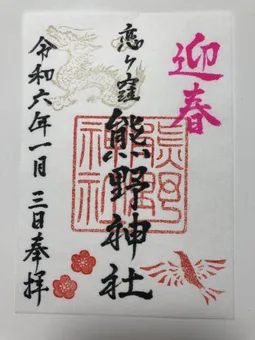 迎春
恋ヶ窪
熊野神社
熊野神社
令和六年一月三日奉拝